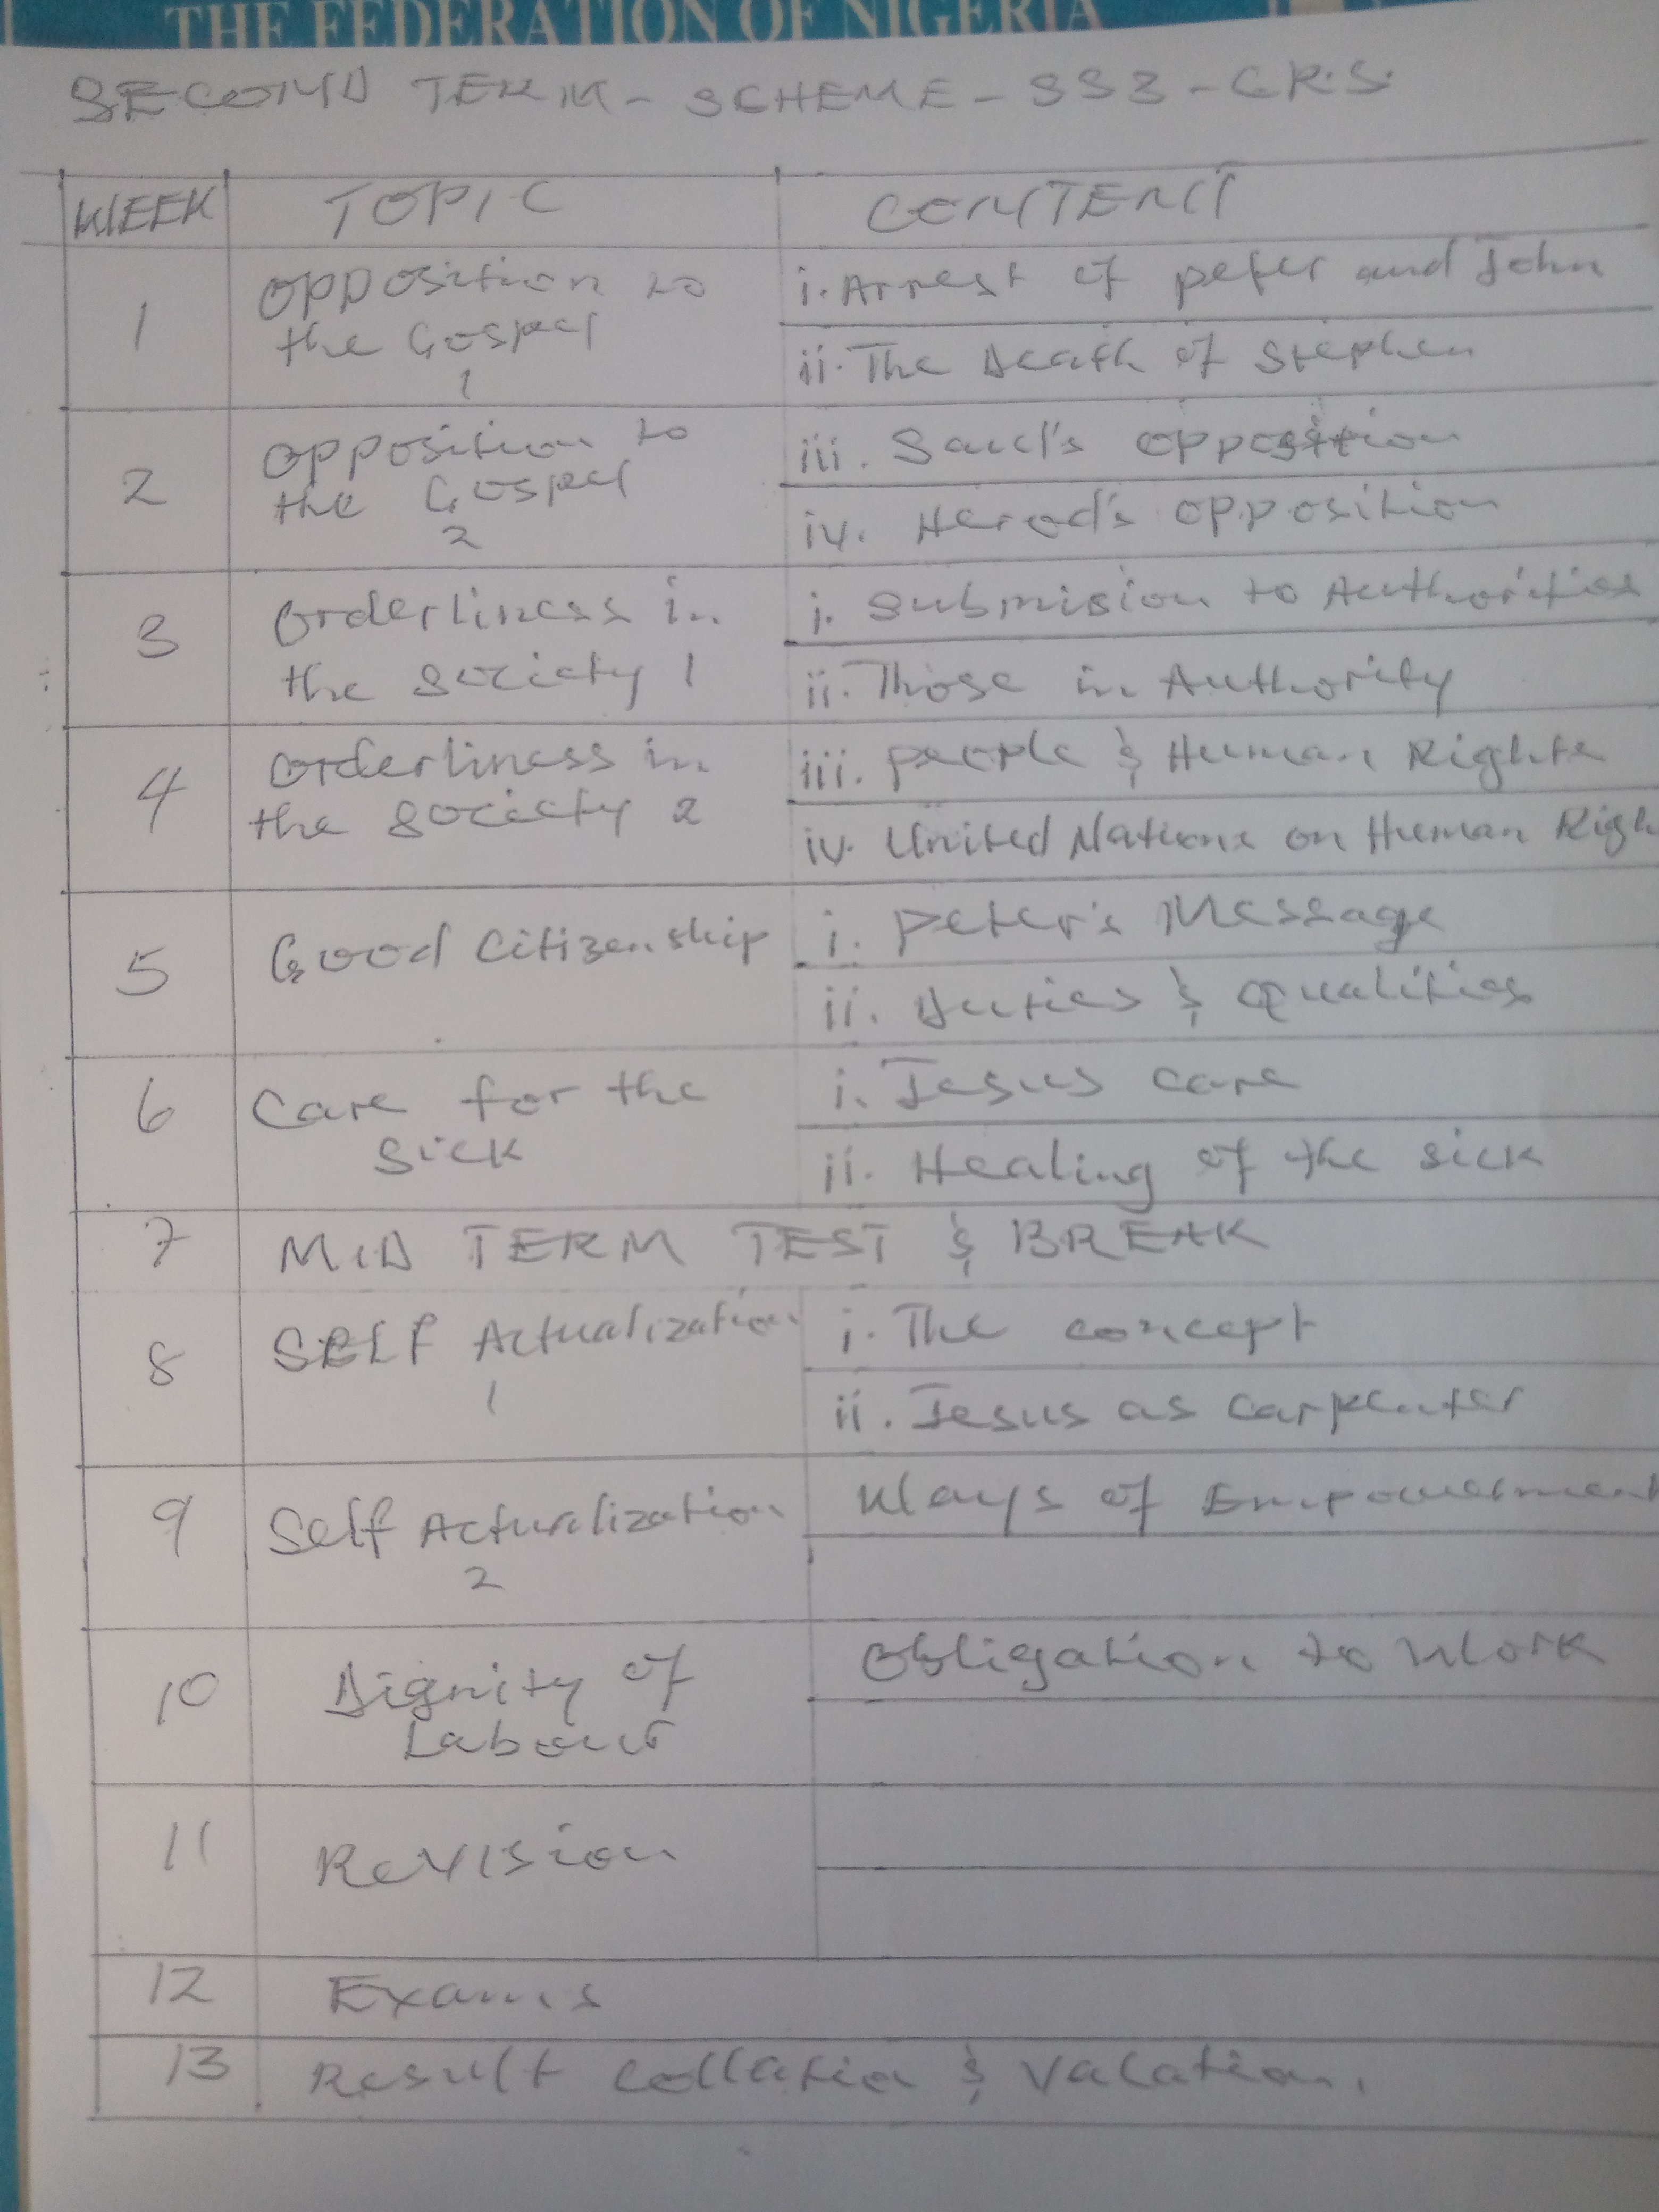 THE FEDERATION OF NIGERIA
SECOND TERM - SCHEME - SS3 - C.R.S.
WEEK TOPIC CONTENT
1 Opposition to the Gospel 1
i. Arrest of peter and John
ii. The Death of Stephen
2 Opposition to the Gospel 2
iii. Saul's opposition
iv. Herod's opposition
3 Orderliness in the society 1
i. Submision to Authorities
ii. Those in Authority
4 Orderliness in the society 2
iii. people & Human Rights
iv. United Nations on Human Righ
5 Good Citizenship
i. Peter's Message
ii. Duties & qualities
6 Care for the Sick
i. Jesus care
ii. Healing of the sick
7 MID TERM TEST & BREAK
8 SELF Actualization 1
i. The concept
ii. Jesus as carpenter
9 Self Actualization 2
Ways of Empowerment
10 Dignity of Labour
Obligation to Work
11 Revision
12 Exams
13 Result Collation & Vacation.